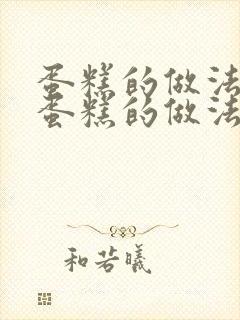 蛋糕的做法
蛋糕的做法
和若曦